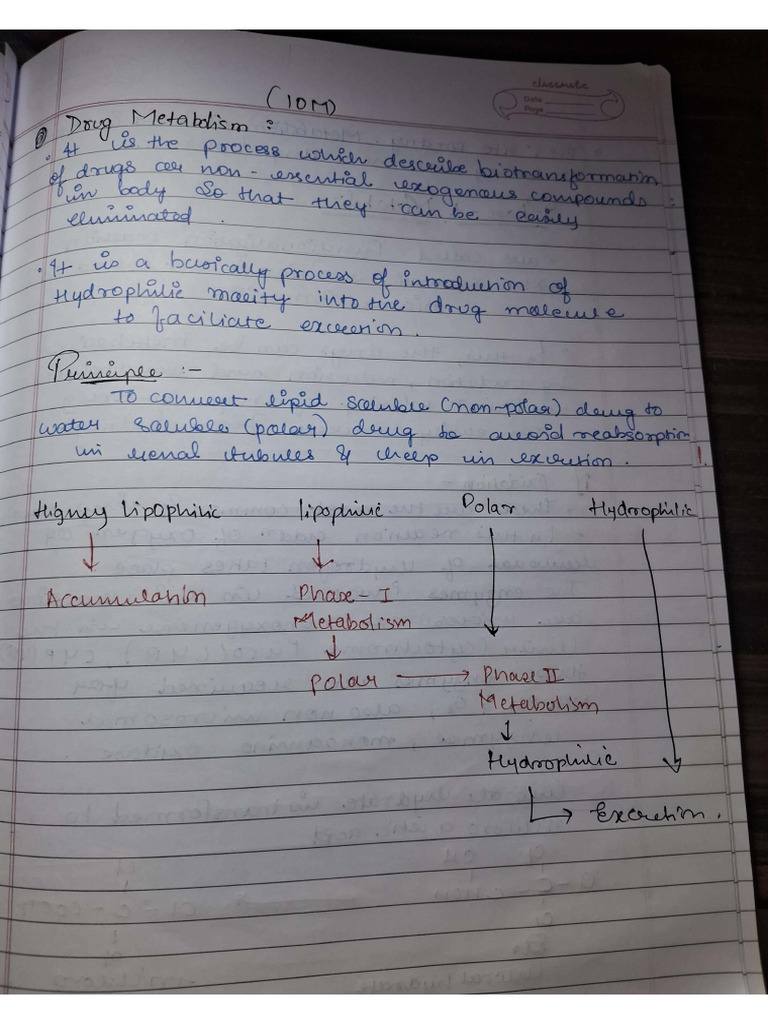 classmate
Date
Page
(10M)
Drug Metabolism :
• It is the process which describe biotransformation
of drugs or non-essential exogenous compounds
in body so that they can be easily
eliminated.
• It is a basically process of introduction of
Hydrophilic moeity into the drug molecule
to faciliate excretion.
Principle :-
To convert lipid soluble (non-polar) drug to
water soluble (polar) drug to avoid reabsorption
in renal tubules & help in excretion.
Highly Lipophilic lipophilic Polar Hydrophilic
Accumulation Phase-I
Metabolism
Polar Phase II
Metabolism
Hydrophilic
Excretion.